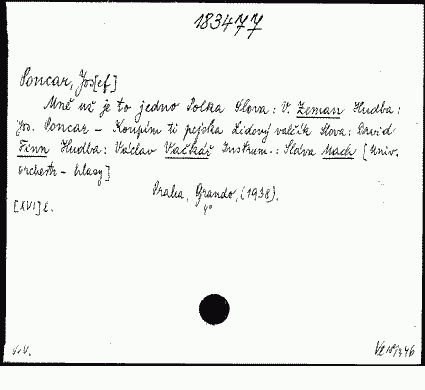 183477
Poncar, Jos[ef]
Mně už je to jedno Polka Slova: V. Zeman Hudba:
Jos. Poncar – Koupím ti pejska Lidový valčík Slova: David
Finn Hudba: Václav Vačkář Instrum.: Sláva Mach [Univ.
orchestr – hlasy]
Praha, Grando, (1938).
4°
[XVI] E.
V.V.